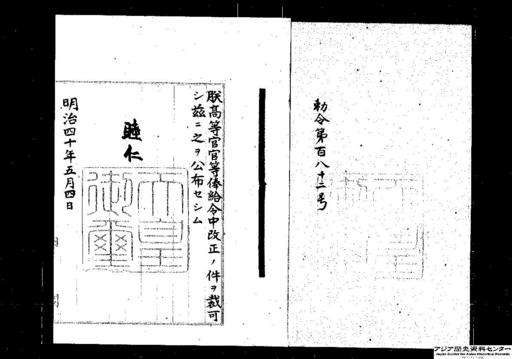 勅令第百八十二号
朕高等官官等俸給令中改正ノ件ヲ裁可
シ茲ニ之ヲ公布セシム
睦仁
天皇御璽
明治四十年五月四日
アジア歴史資料センター
Japan Center for Asian Historical Records